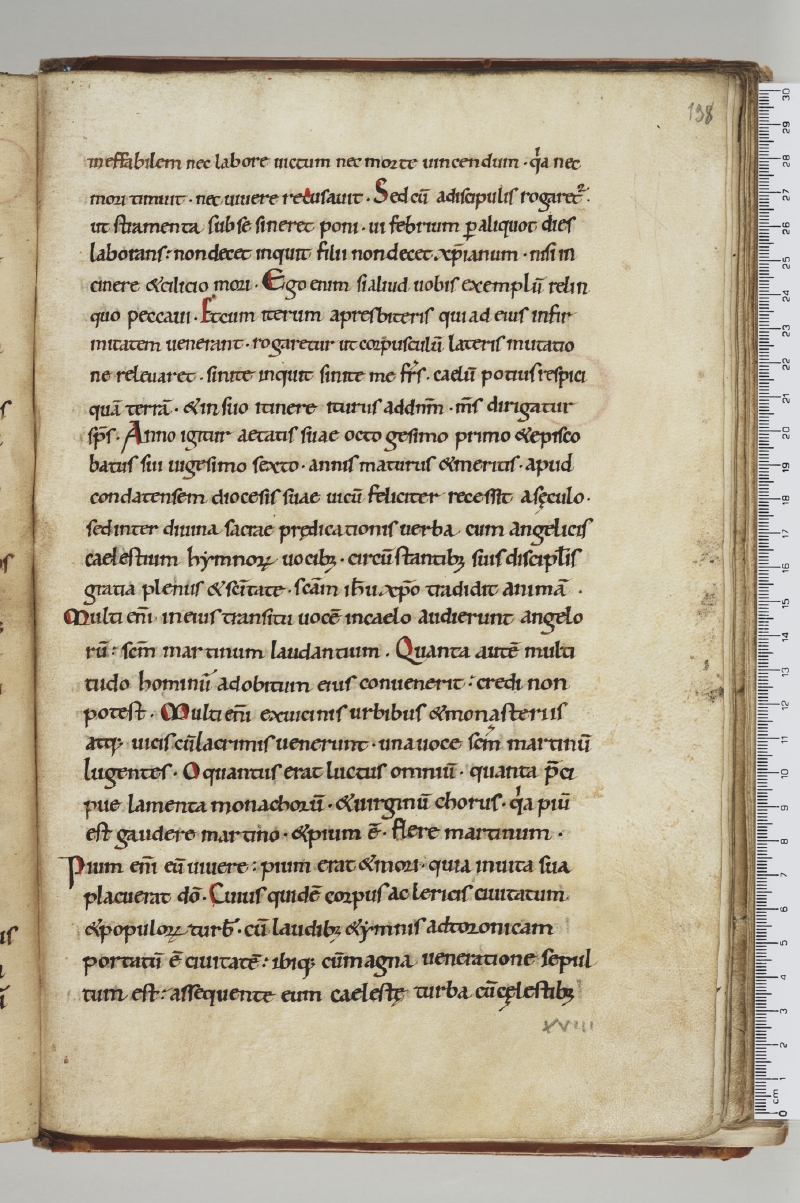 198
ineffabilem nec labore uictum nec morte uincendum · q̇a nec
mori timuit · nec uiuere recusauit . Sed cū a discipulis rogaret᷑ ·
ut stramenta sub se sineret poni · ui febrium ꝑ aliquot dies
laborans : non decet inquit filii non decet xp̄ianum · nisi in
cinere & cilicio mori · Ego enim si aliud uobis exemplū relin
quo peccaui . Et cum iterum a presbiteris qui ad eius infir
mitatem uenerant · rogaretur ut corpusculū lateris mutatio
ne releuaret · sinite inquit sinite me fr̄s · caelū potius respici
quā terrā · & in suo itinere iturus ad dn̄m · m̄s dirigatur
sp̄s · Anno igitur aetatis suae octogesimo primo & episco
batus sui uigesimo sexto · annis maturus & meritis · apud
condatensem diocesis suae uicū feliciter recessit a sęculo ·
sed inter diuina sacrae prędicationis uerba cum angelicis
caelestium hymnoꝝ uocibꝫ · circū stantibꝫ suis disciplis
gratia plenus & sc̄itate · sc̄am ih̄u xp̄o tradidit animā .
Multi eni̅ in eius transitu uocē in caelo audierunt angelo
rū : sc̄m martinum laudantium . Quanta autē multi
tudo hominū ad obitum eius conuenerit : credi non
potest · Multi eni̅ ex uicinis urbibus & monasteriis
atqꝫ uicis cū lacrimis uenerunt · una uoce sc̄m martinū
lugentes · O quantus erat luctus omniū · quanta p̄ci
pue lamenta monachorū · & uirginū chorus · q̇a piū
est gaudere martino · & pium ē · flere martinum .
Pium eni̅ eū uiuere : pium erat & mori · quia inuita sua
placuerat dō . Cuius quidē corpus a clericis ciuitatum
& populoꝝ turb̄ · cū laudibꝫ & ymnis ad toronicam
portatū ē ciuitatē : ibiqꝫ cū magna ueneratione sepul
tum est : assequente eum caelestę turba cū cęlestibꝫ
XVIII
30 29 28 27 26 25 24 23 22 21 20 19 18 17 16 15 14 13 12 11 10 9 8 7 6 5 4 3 2 1 cm 0